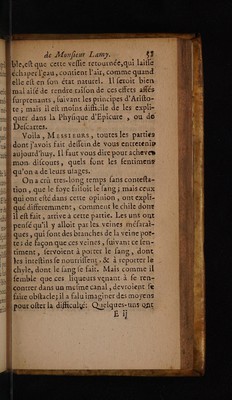 de Monsieur Lamy.
ble, est que cette vessie retournée, qui laisse
échaper l'eau, contient l'air, comme quand
elle est en son état naturel. Il seroit bien
mal aisé de rendre raison de ces effets assés
surprenants, suivant les principes d'Aristo-
te; mais il est moins difficile de les expli-
quer dans la Physique d'Epicure, ou de
Descartes.
Voila, MESSIEURS, toutes les parties
dont j'avois fait dessein de vous entretenir
aujourd'huy. Il faut vous dire pour achever
mon discours, quels sont les sentimens
qu'on a de leurs usages.
On a crû tres-long temps sans contesta-
tion, que le foye faisoit le sang; mais ceux
qui ont esté dans cette opinion, ont expli-
qué differemment, comment le chile dont
il est fait, arrive a cette partie. Les uns ont
pensé qu'il y alloit par les veines mésarai-
ques, qui sont des branches de la veine por-
te: de façon que ces veines, suivant ce sen-
timent, servoient à porter le sang, dont
les intestins se nourrissent, & à reporter le
chyle, dont le sang se fait. Mais comme il
semble que ces liqueurs venant à se ren-
contrer dans un même canal, devroient se
faire obstacle; il a falu imaginer des moyens
pour oster la difficulté: Quelques-uns ont
E ij